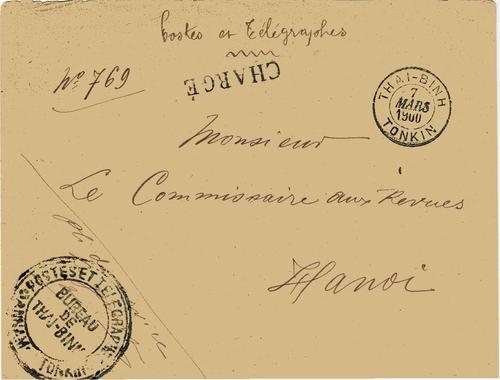 Postes et Télégraphes
N° 769
CHARGÉ
THAI-BINH
7
MARS
1900
TONKIN
Monsieur
Le Commissaire aux Revues
Hanoi
POSTES ET TELEGRAPHES
BUREAU
DE
THAI-BINH
TONKIN